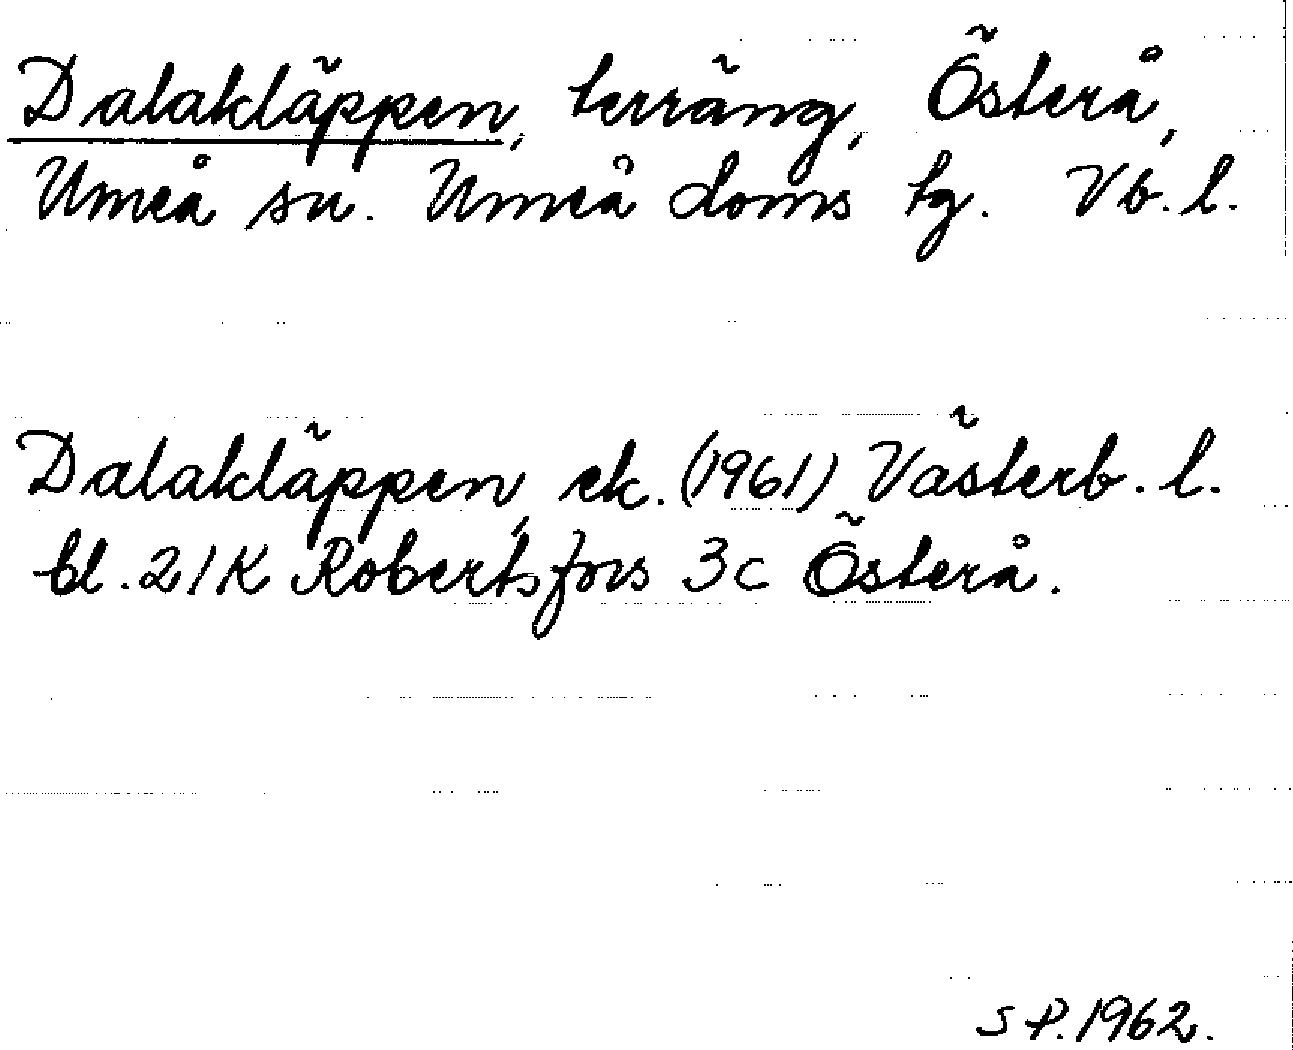 Dalakläppen, terräng, Österå,
Umeå sn. Umeå doms tg. Vb. l.
Dalakläppen, ek. (1961) Västerb. l.
bl. 21K Robertsfors 3c Österå.
SP. 1962.